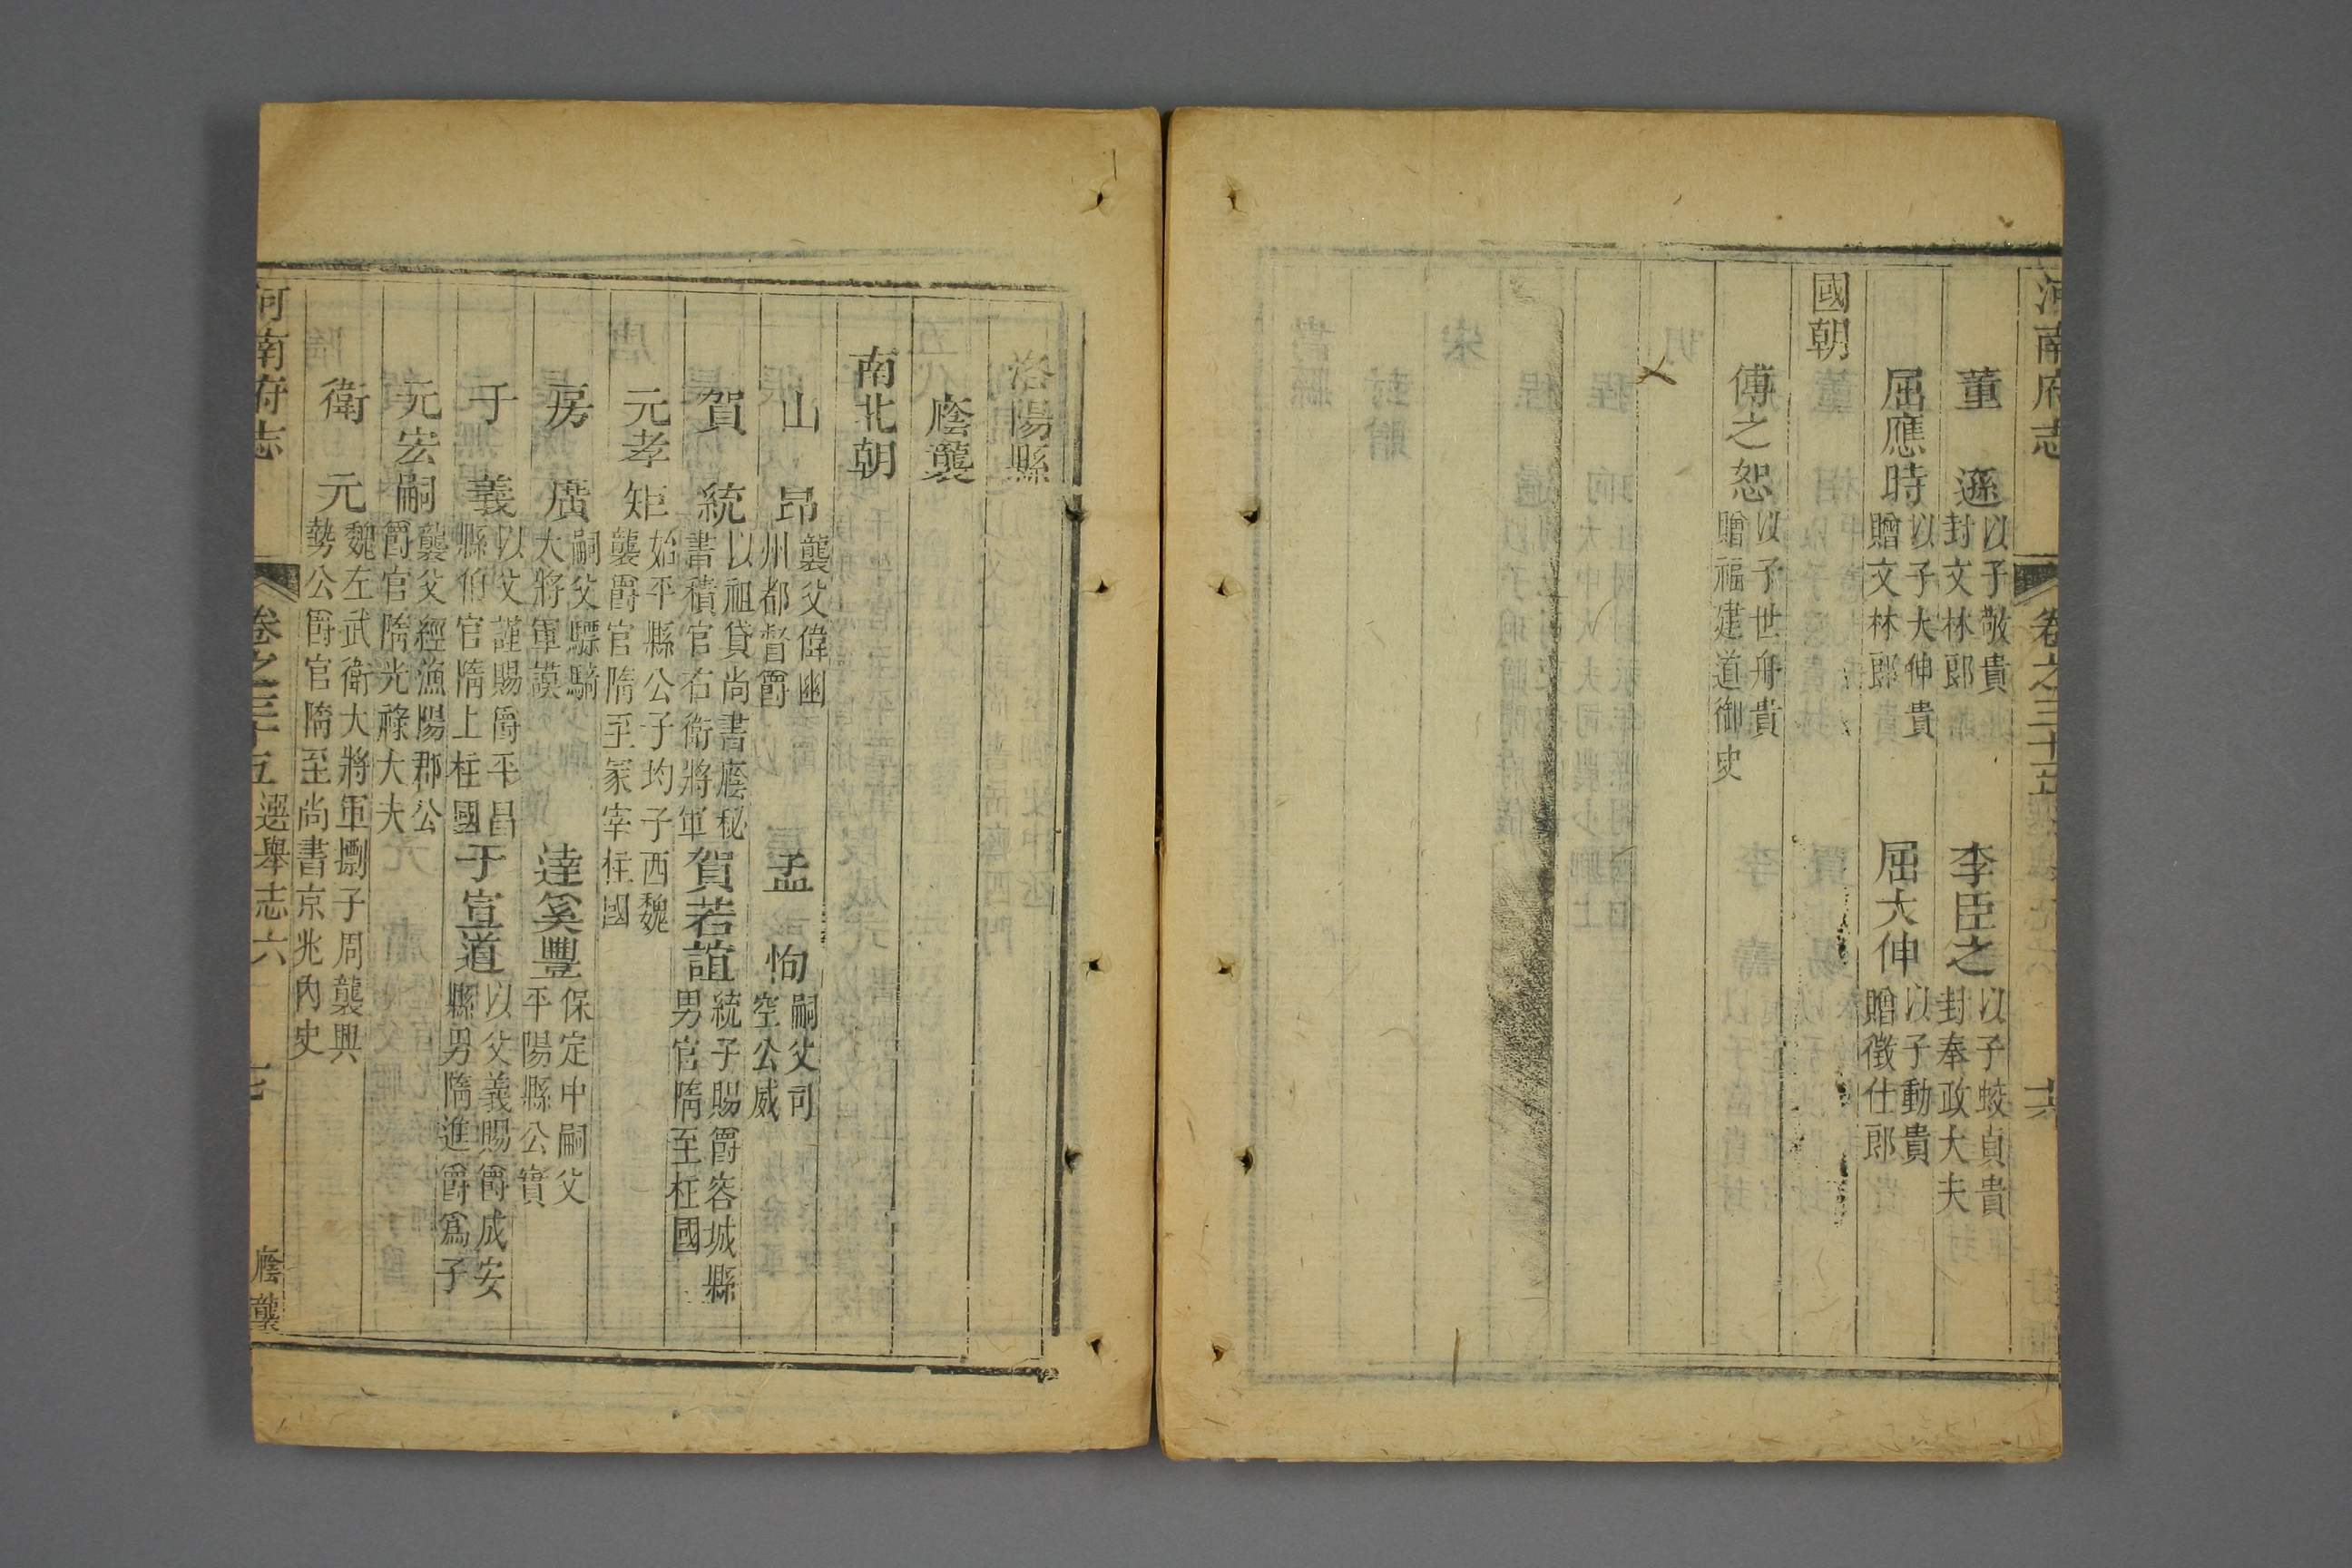 河南府志 卷之三十五
董遜 以子敬貴封文林郎 李臣之 以子蛟貞貴封奉政大夫
屈應時 以子大伸貴贈文林郎 屈大伸 以子動貴贈徵仕郎
國朝
傅之恕 以子世舟貴贈福建道御史
洛陽縣
廕襲
南北朝
山昂 襲父偉幽州都督爵 孟恂 嗣父司空公威
賀統 以祖貸尚書廕秘書積官右衛將軍 賀若誼 統子賜爵容城縣男官隋至柱國
元孝矩 始平縣公子均子西魏襲爵官隋至冡宰柱國
房廣 嗣父驃騎大將軍謨 達奚豐 保定中嗣父平陽縣公寔
于義 以父謹賜爵平昌縣伯官隋上柱國 于宣道 以父義賜爵成安縣男隋進爵爲子
元宏嗣 襲父經漁陽郡公爵官隋光祿大夫
衛元 魏左武衛大將軍㯹子周襲興勢公爵官隋至尚書京兆內史
河南府志 卷之三十五 選舉志六 廕襲